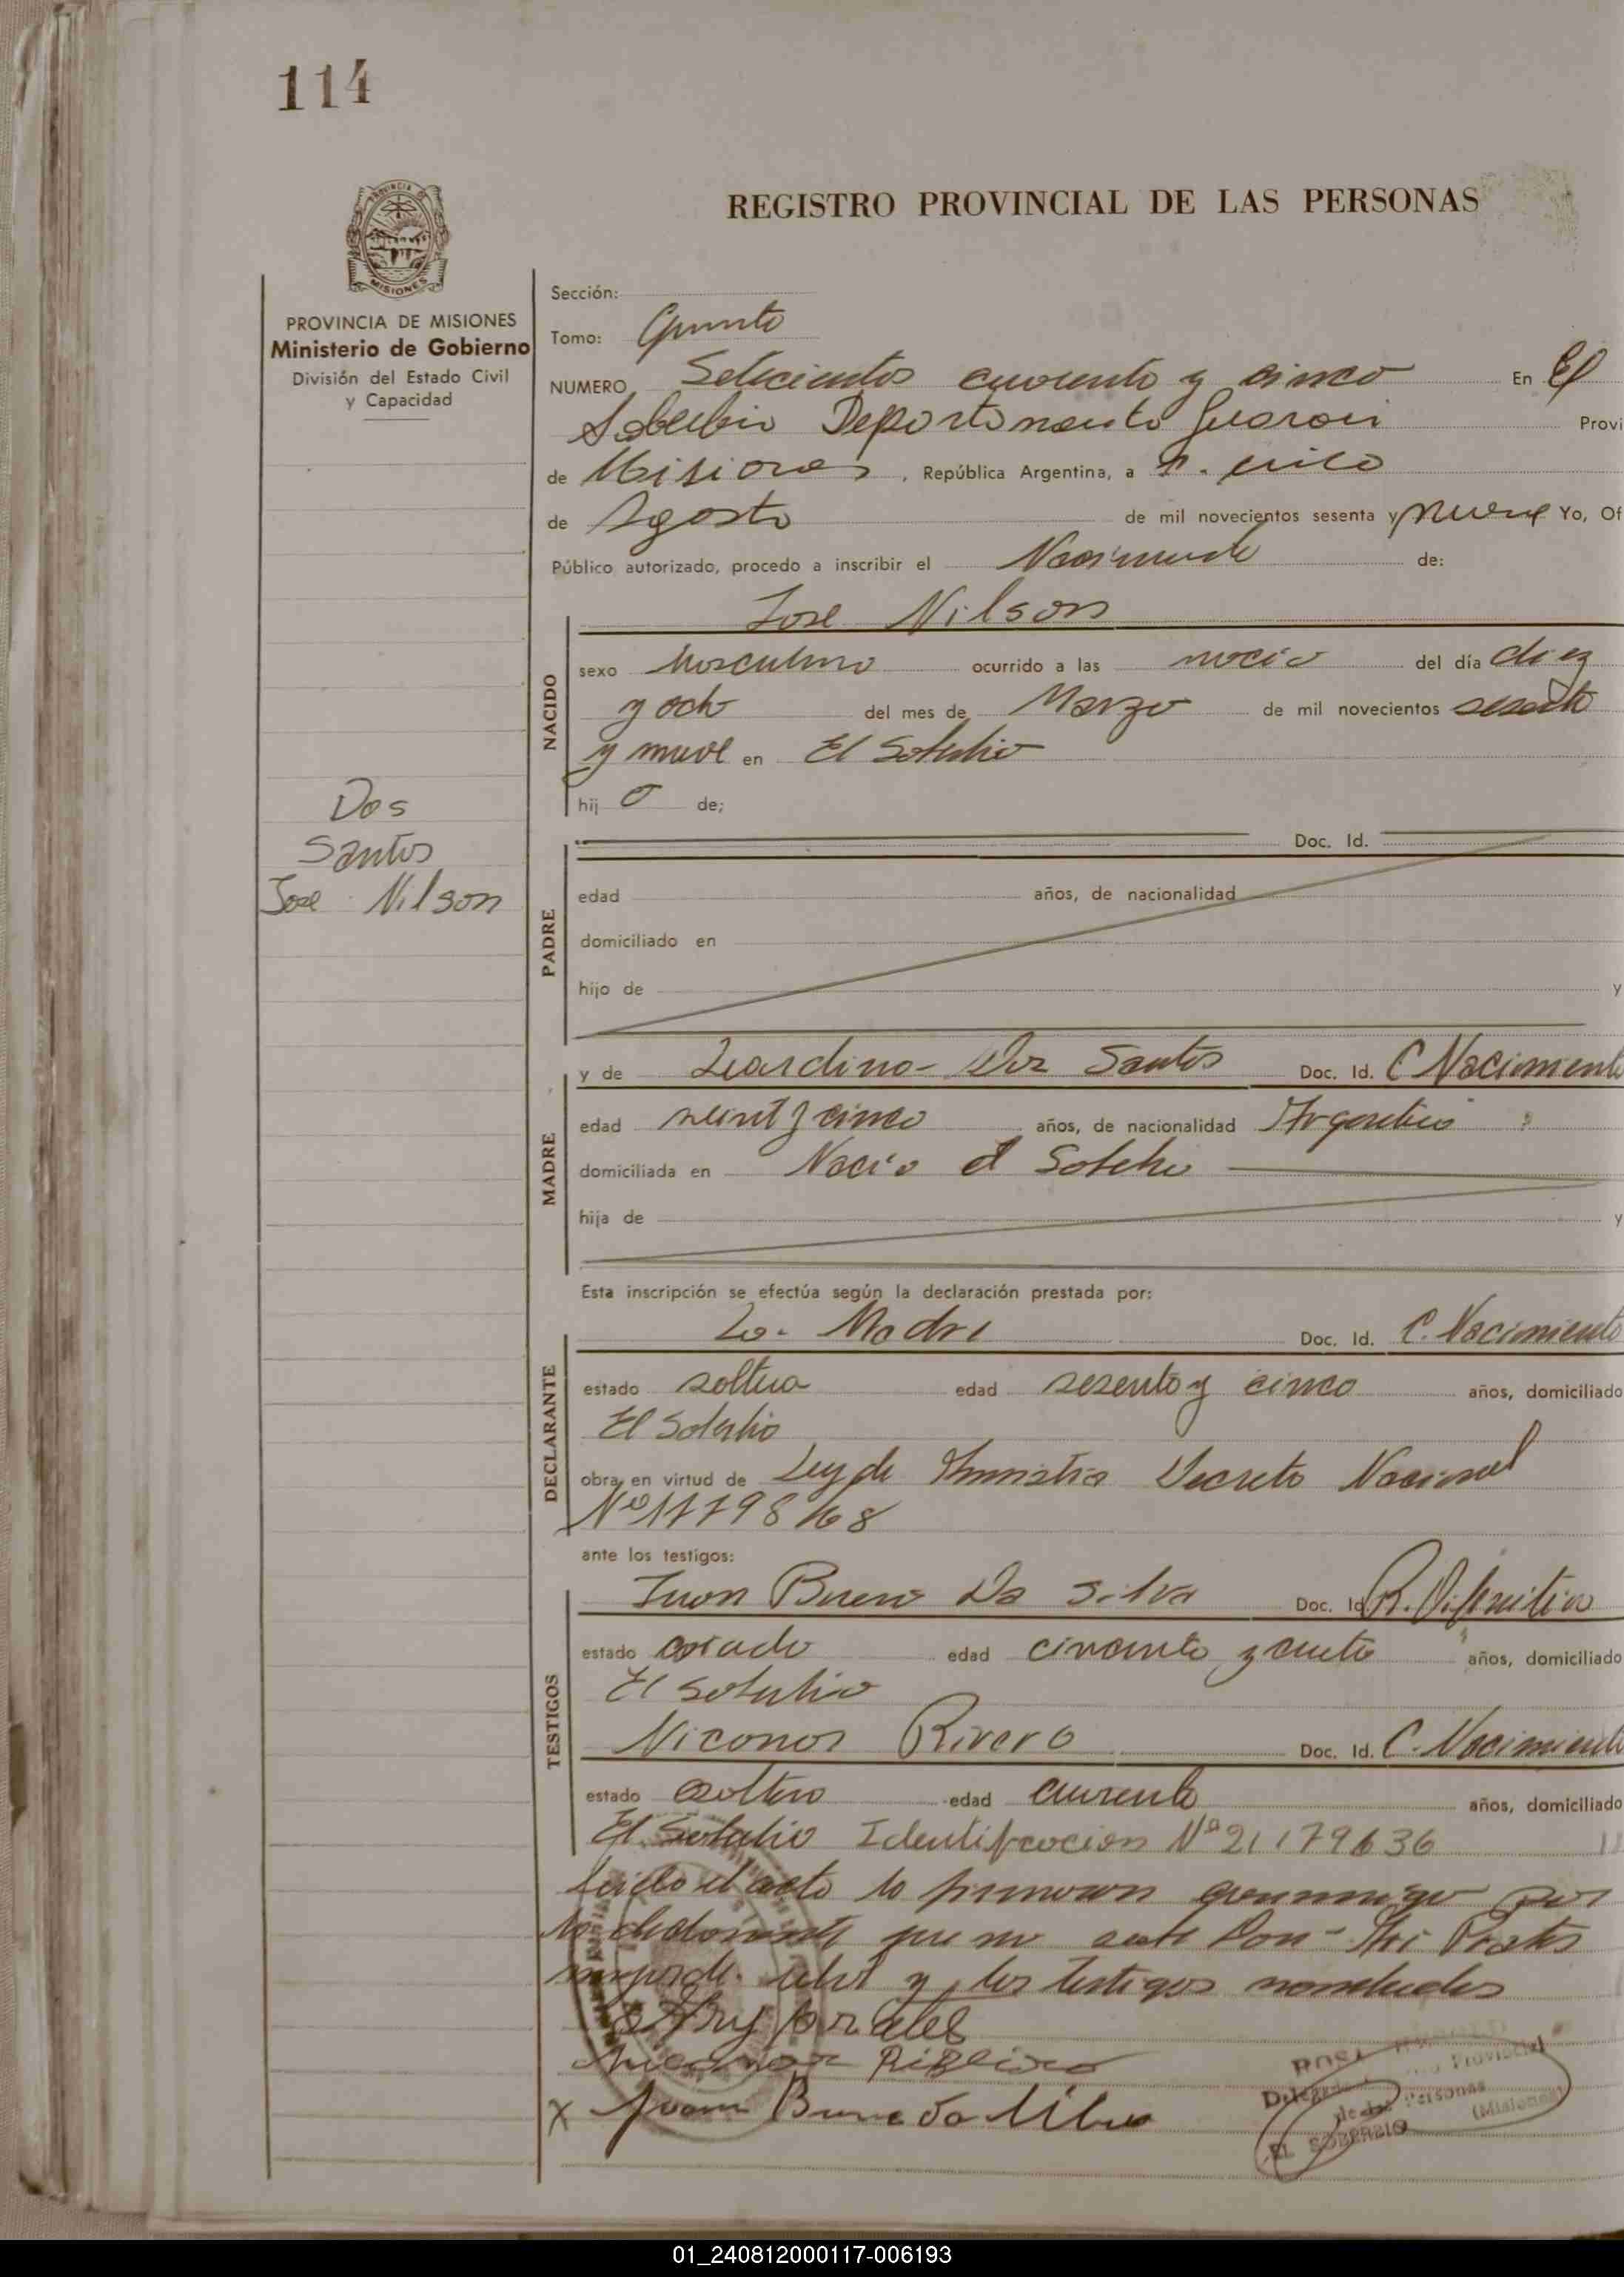 114
REGISTRO PROVINCIAL DE LAS PERSONAS
PROVINCIA DE MISIONES
Ministerio de Gobierno
División del Estado Civil
y Capacidad
Dos
Santos
Jose Nilson
Sección:
Tomo: Quinto
NUMERO Setecientos cuarenta y cinco En El
Soberbio Departamento Guarani Provi
de Misiones, República Argentina, a
de Agosto de mil novecientos sesenta y nueve Yo, Of
Público autorizado, procedo a inscribir el Nacimiento de:
Jose Nilson
NACIDO
sexo Masculino ocurrido a las del día diez
y ocho del mes de Marzo de mil novecientos sesenta
y nueve en El Soberbio
hij o de;
PADRE
Doc. Id.
edad años, de nacionalidad
domiciliado en
hijo de y
MADRE
y de Dos Santos Doc. Id. C Nacimiento
edad veinte y cinco años, de nacionalidad Argentina
domiciliada en Nació El Soberbio
hija de y
Esta inscripción se efectúa según la declaración prestada por:
DECLARANTE
La Madre Doc. Id. C. Nacimiento
estado soltera edad sesenta y cinco años, domiciliado
El Soberbio
obra en virtud de Ley de Amnistia Decreto Nacional
Nº 17798/68
ante los testigos:
TESTIGOS
Juan Bueno Da Silva Doc. Id. R. Difinitiva
estado casado edad años, domiciliado
El Soberbio
Nicanor Rivero Doc. Id. C. Nacimiento
estado soltero edad cuarenta años, domiciliado
El Soberbio Identificacion Nº 21179636
Leido el acta la firmaron conmigo por
la declarante que no Don Ari Prates
y los testigos nombrados
Ary prates
Nicanor Ribeiro
x Juan Bueno da Silva
EL SOBERBIO
01_240812000117-006193